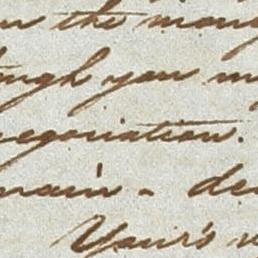 the mon
ough you m
negociation.
main - de
Your's